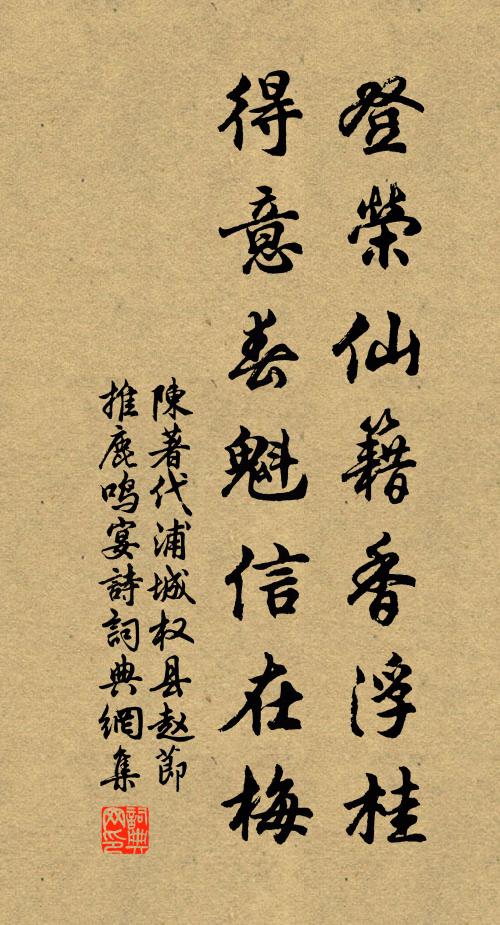 登榮仙籍香浮桂
得意春魁信在梅
陳著代浦城权县赵節
推鹿鸣宴詩詞典網集
詞典
网印